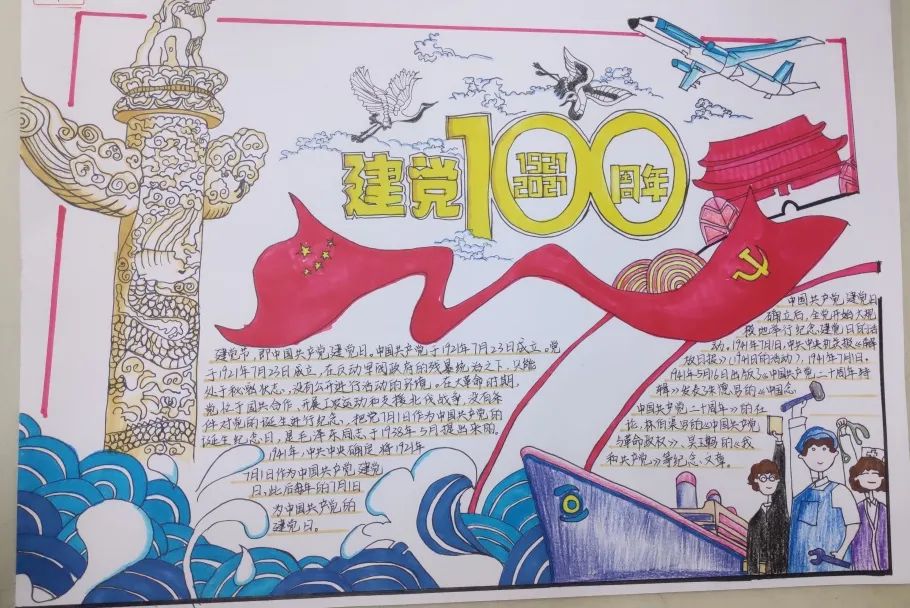 建党100周年
1921
2021
建党节,即中国共产党建党日。中国共产党于1921年7月23日成立。党
于1921年7月23日成立,在反动军阀政府的残暴统治之下,只能
处于秘密状态,没有公开进行活动的环境。在大革命时期,
党忙于国共合作、开展工农运动和支援北伐战争,没有条
件对党的诞生进行纪念。把党7月1日作为中国共产党的
诞生纪念日,是毛泽东同志于1938年5月提出来的。
1941年,中共中央确定将1921年
7月1日作为中国共产党建党
日,此后每年的7月1日
为中国共产党的
建党日。
中国共产党建党日
确立后,全党开始大规
模地举行纪念建党日的活
动。1941年7月1日,中共中央机关报《解
放日报》(1941日的活动),1941年7月1日。
1941年5月16日出版《中国共产党二十周年特
辑》发表了朱德写的《中国
中国共产党二十周年》的社
论,林伯渠写的《中国共产党
与革命政权》、吴玉章的《我
和共产党》等纪念文章。